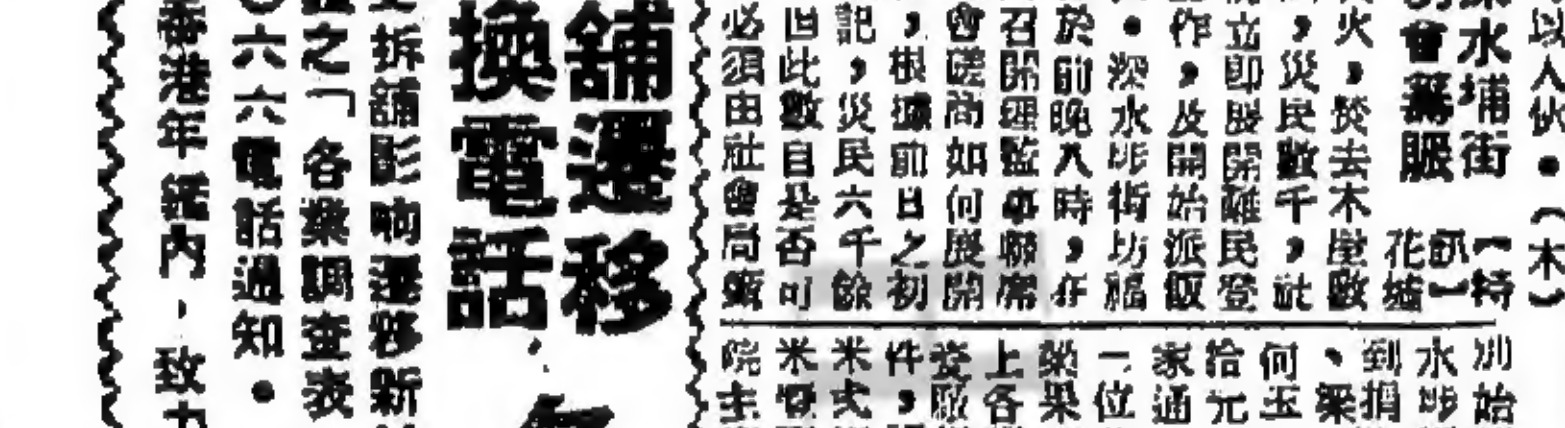 以人伙・（木）
深水埔街
【特訊】
別會籌賑
花墟
火，焚去木屋數
，災民數千，社
立即展開難民登
作，及開始派飯
・深水埗街坊福
於前晚八時，在
召開理監事聯席
會磋商如何展開
，根據前日之初
記，災民六千餘
但此數自是否可
必須由社會局
別始
水埗
到捐
、梁
何玉
拾元
家通
一位
果
上各
件，
米
米
院主
舖遷移
換電話
拆舖影响遷移新
之「各業調查表
六六電話通知・
香港年鑑內，致力